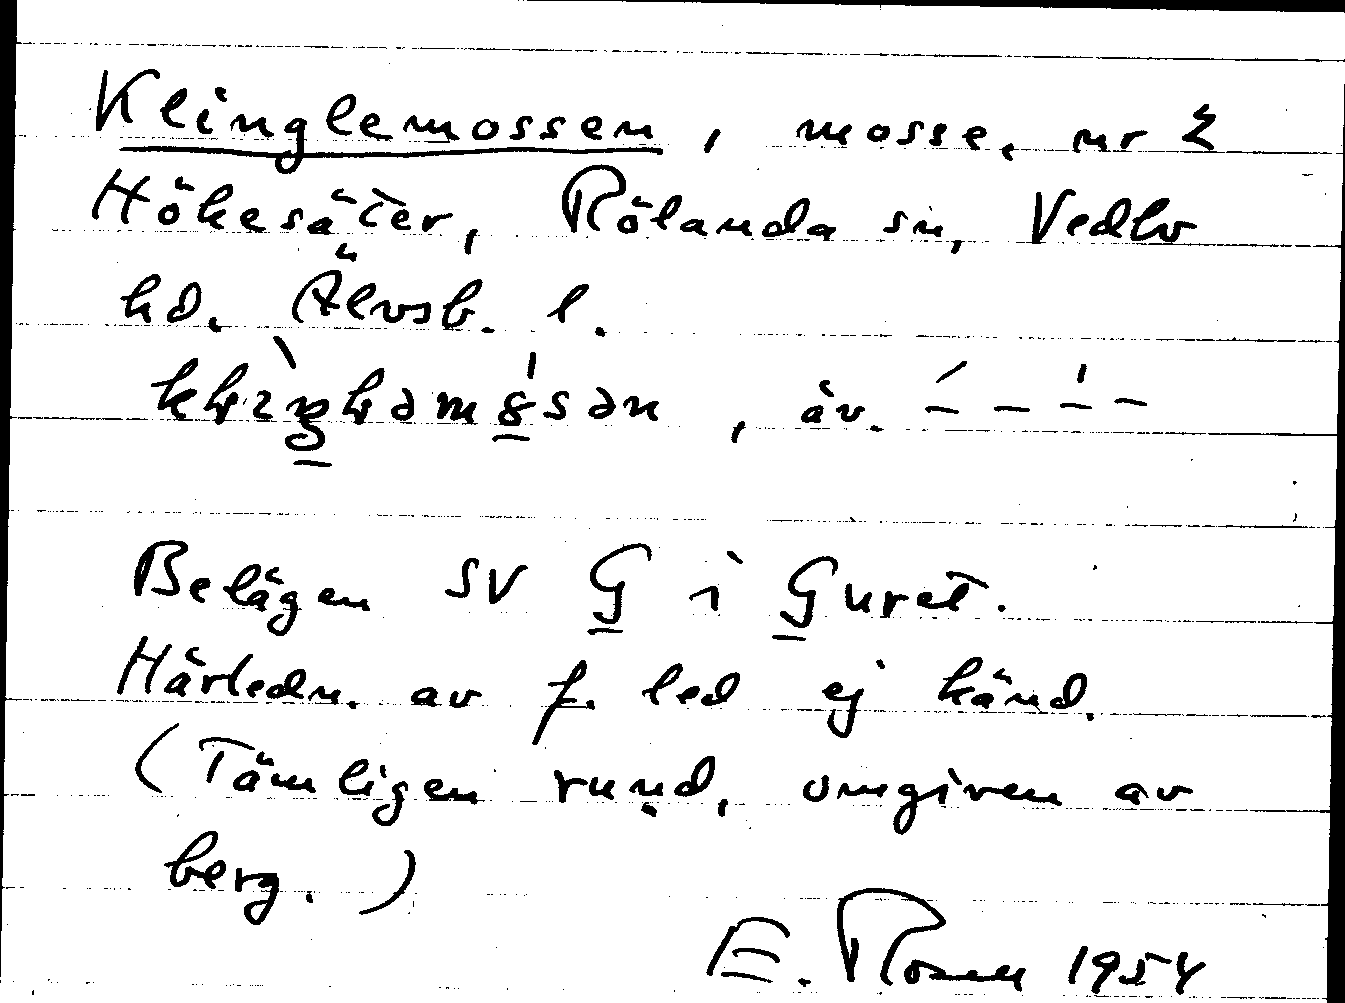 Klinglemossen, mosse, nr 2
Hökesäter, Rölanda sn, Vedbo
hd. Älvsb. l.
Belägen SV G i Guret.
Härledn. av f. led ej känd.
(Tämligen rund, omgiven av
berg.)
E. Rosell 1954